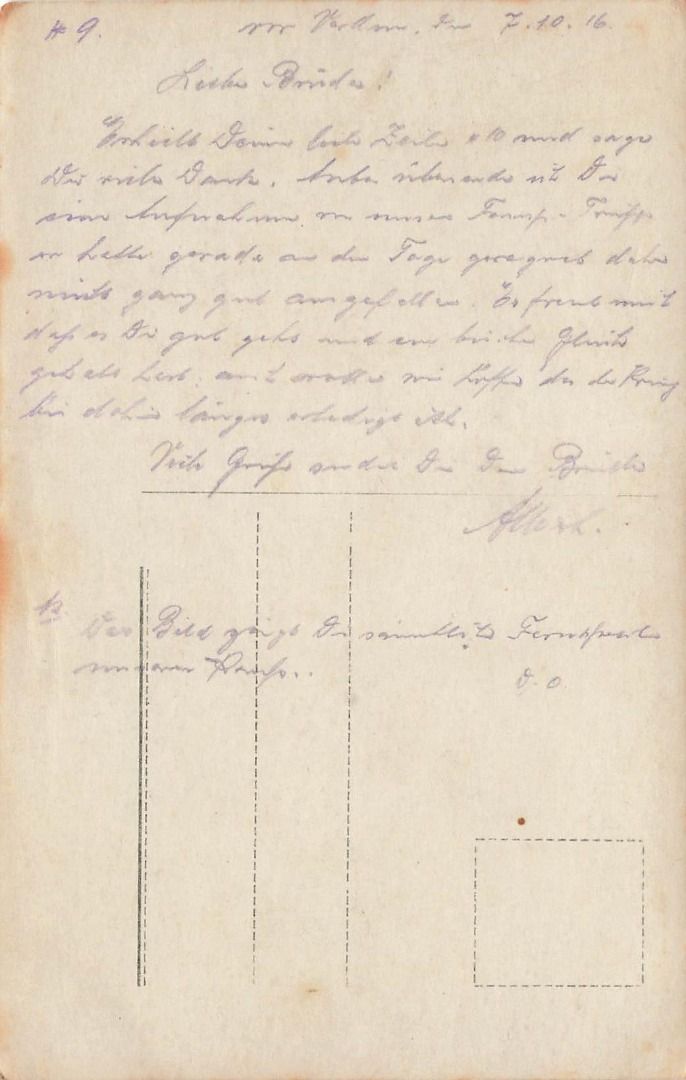 # 9. vor Verdun, den 7.10.16.
Lieber Bruder!
Erhielt Deine liebe Zeile #10 und sage
Dir viele Dank. Anbei übersende ich Dir
eine Aufnahme von unserer Fernsp.-Trupp
er hatte gerade an dem Tage geregnet daher
nicht ganz gut ausgefallen. Es freut mich
daß es Dir gut geht und
auch wollen wir hoffen das der Krieg
bis dahin längst erledigt ist.
Viele Grüße sendet Dir Dein Bruder
Albert.
Das Bild zeigt Dir sämmtliche Fernsprecher
unserer
D. O